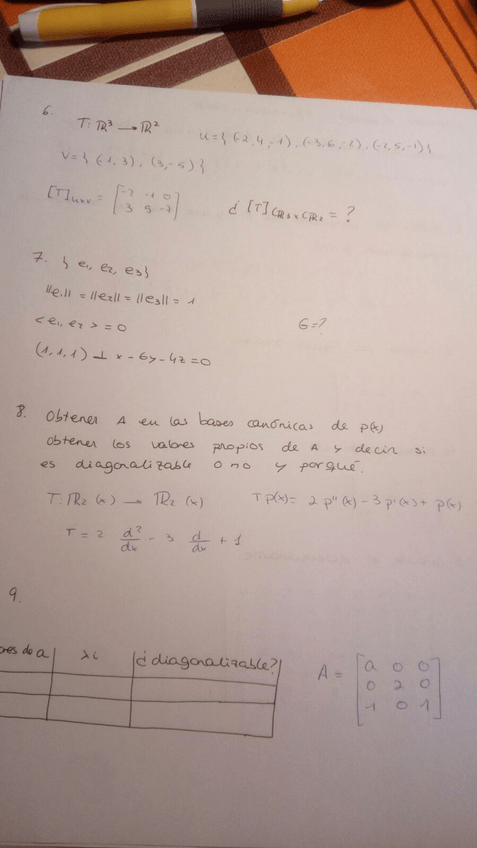 6.
T: ℝ³ → ℝ²
U = { (-2, 4, -1), (-3, 6, -2), (-2, 5, -1) }
V = { (-1, 3), (3, -5) }
[T]uxv = [-2 -1 0
3 5 -7]
¿ [T]Cℝ3 x Cℝ2 = ?
7. { e1, e2, e3 }
||e1|| = ||e2|| = ||e3|| = 1
< e1, e2 > = 0
G = ?
(1, 1, 1) ⊥ x - 6y - 4z = 0
8. Obtener A en las bases canónicas de p(x)
obtener los valores propios de A y decir si
es diagonalizable o no y porqué.
T: ℝ2 (x) → ℝ2 (x) T p(x) = 2 p''(x) - 3 p'(x) + p(x)
T = 2 d²/dx - 3 d/dx + 1
9.
ores de a | λi | ¿diagonalizable?
A = [a 0 0
0 2 0
-1 0 1]